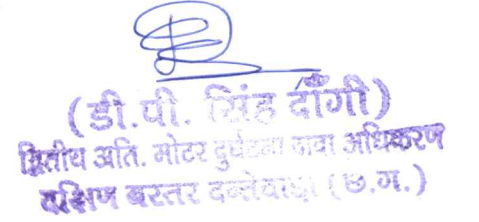 (डी.पी. सिंह दाँगी)
द्वितीय अति. मोटर दुर्घटना दावा अधिकरण
दक्षिण बस्तर दन्तेवाड़ा (छ.ग.)